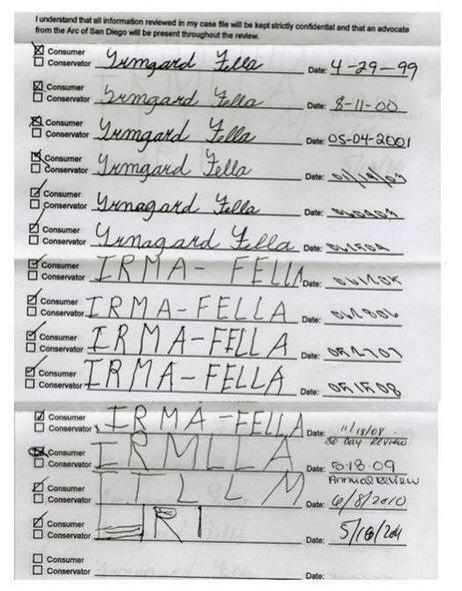 I understand that all information reviewed in my case file will be kept strictly confidential and that an advocate
from the Arc of San Diego will be present throughout the review.
Consumer
Conservator Yrmgard Fella Date: 4-29-99
Consumer
Conservator Yrmgard Fella Date: 8-11-00
Consumer
Conservator Yrmgard Fella Date: 05-04-2001
Consumer
Conservator Yrmgard Fella Date:
Consumer
Conservator Yrnagard Fella Date:
Consumer
Conservator Yrnagard Fella Date:
Consumer
Conservator IRMA- FELLA Date:
Consumer
Conservator IRMA-FELLA Date:
Consumer
Conservator IRMA-FELLA Date: 051707
Consumer
Conservator IRMA-FELLA Date: 051508
Consumer
Conservator IRMA-FELLA Date: 11/18/08
30 DAY REVIEW
Consumer
Conservator IRMLLA Date: 5-18-09
Annual Review
Consumer
Conservator ITLLM Date: 6/8/2010
Consumer
Conservator IRI Date: 5/18/2011
Consumer
Conservator Date: